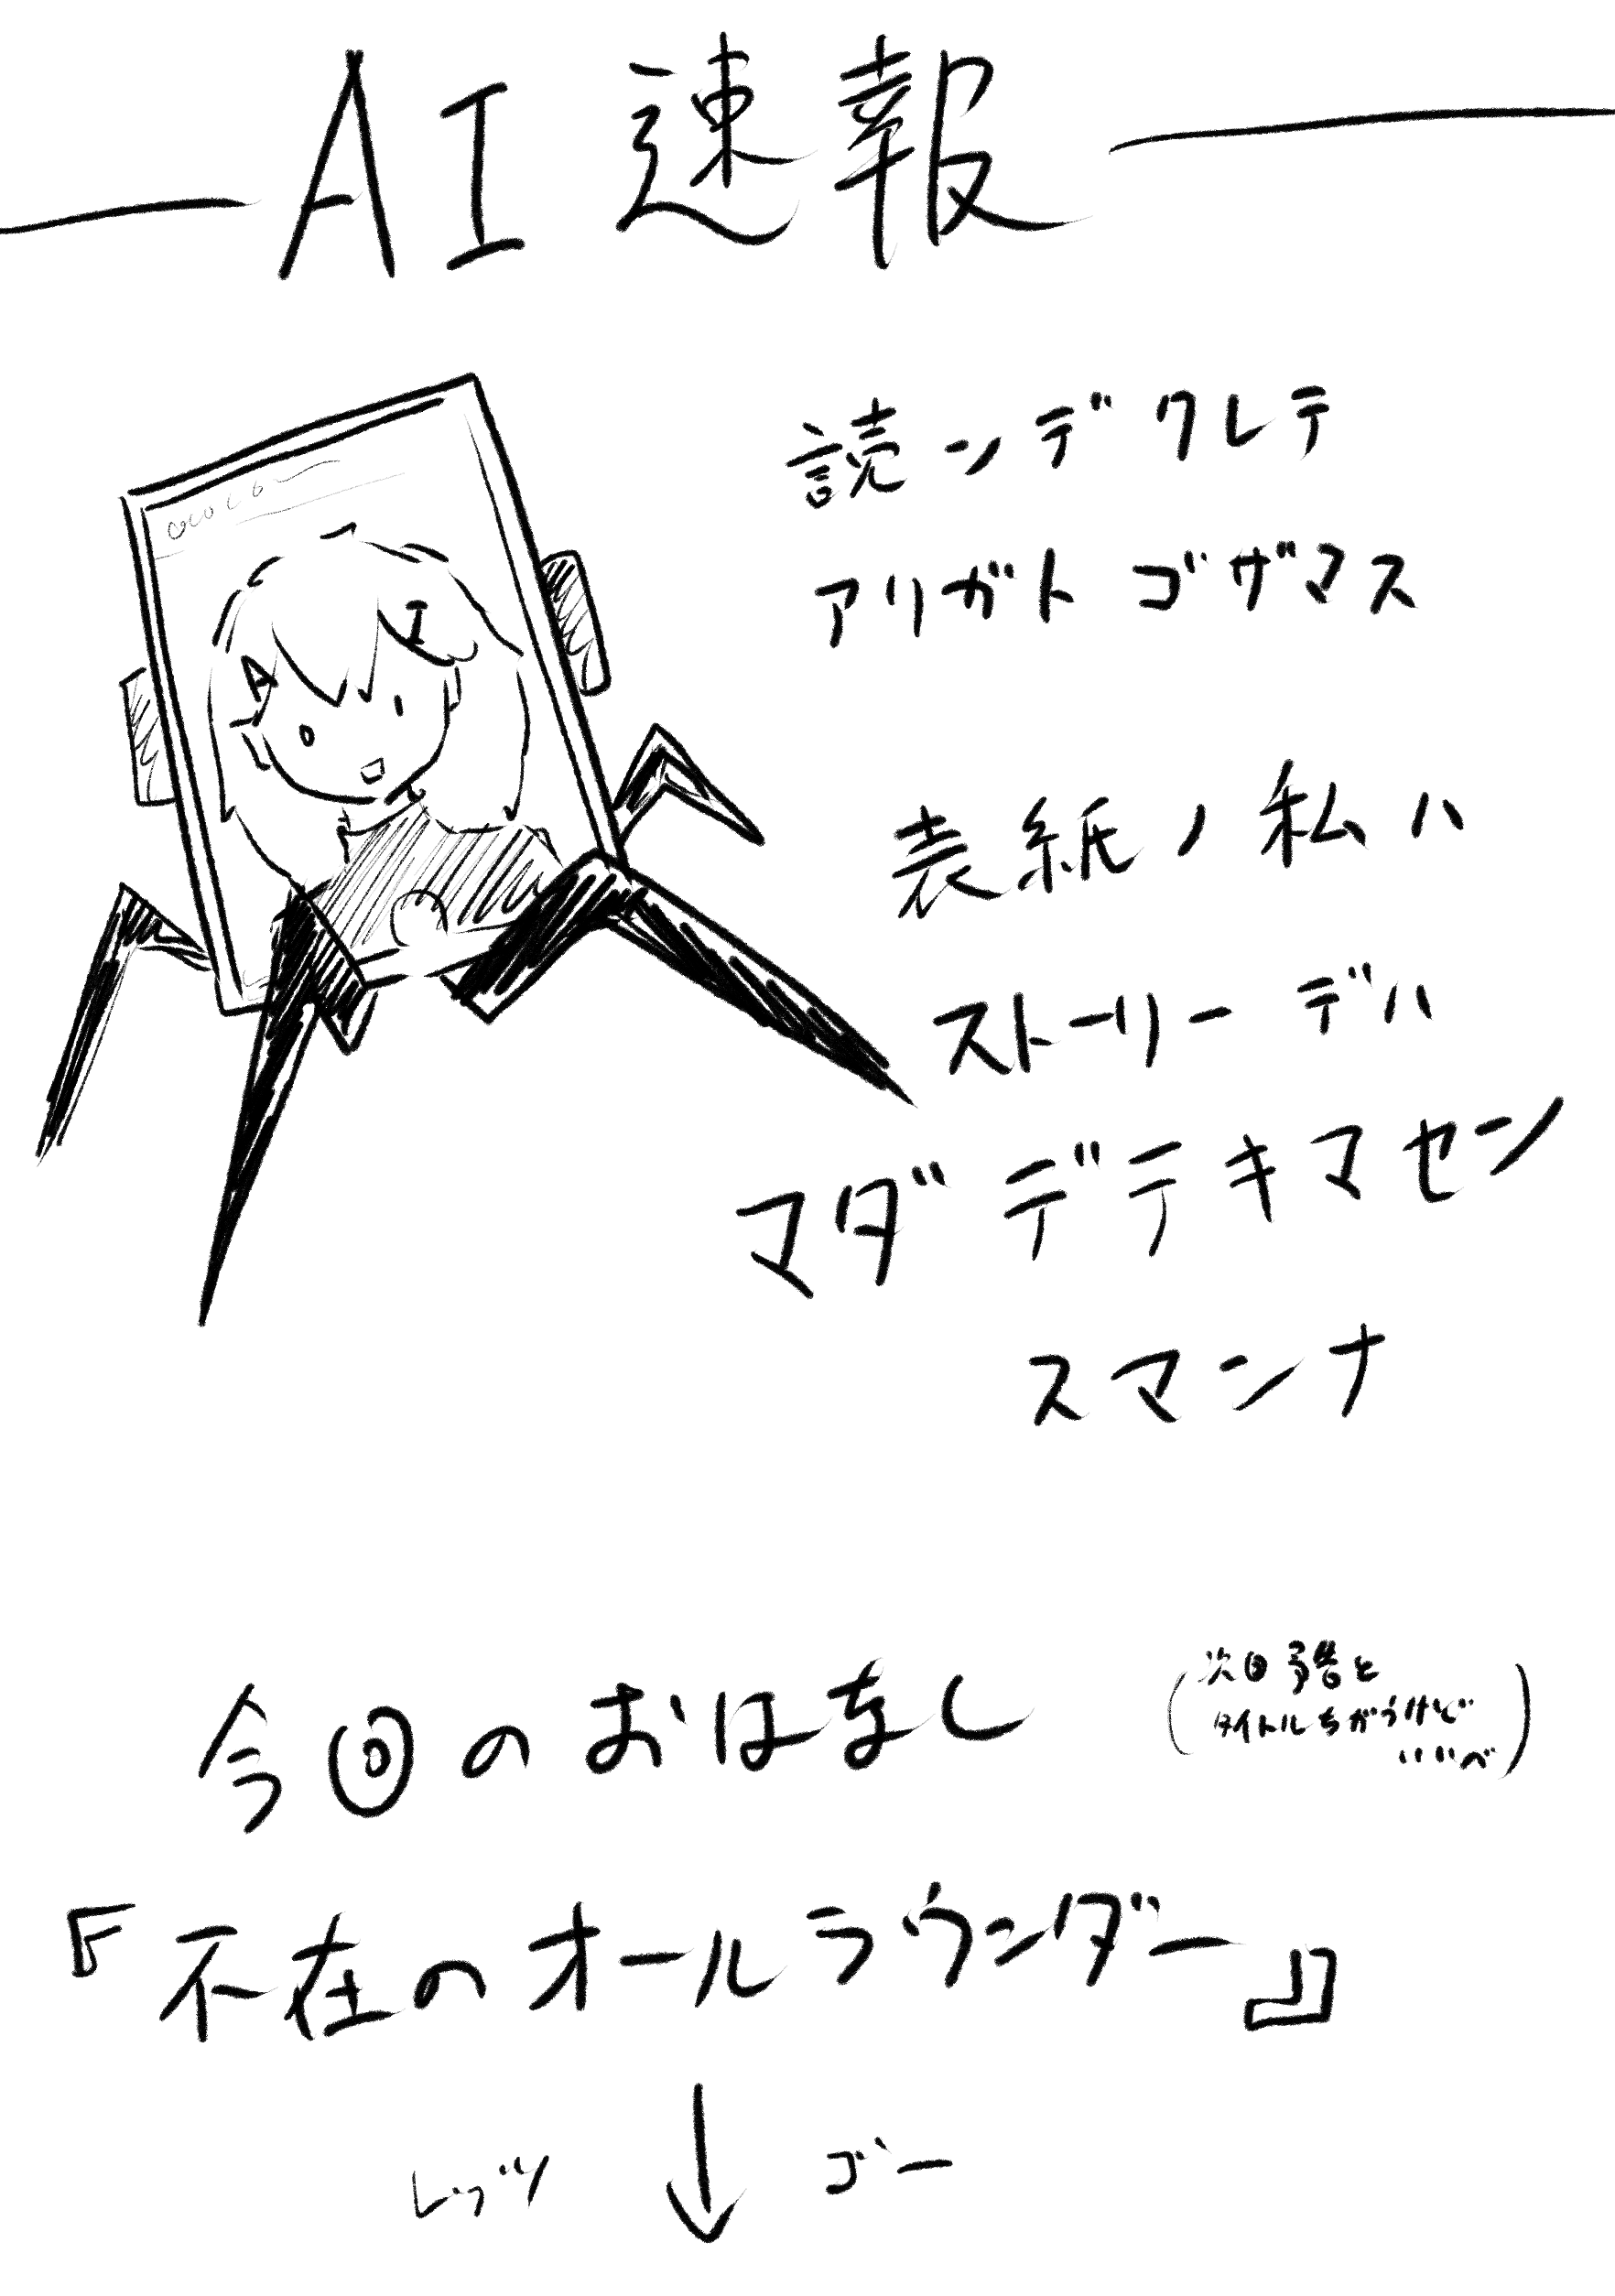 AI速報
読ンデクレテ
アリガト ゴザマス
表紙ノ私ハ
ストーリー デハ
マダ デテキマセン
スマンナ
A I
今回のおはなし
(次回予告と
タイトルちがうけど
いいべ)
『不在のオールラウンダー』
レッツ ↓ ゴー